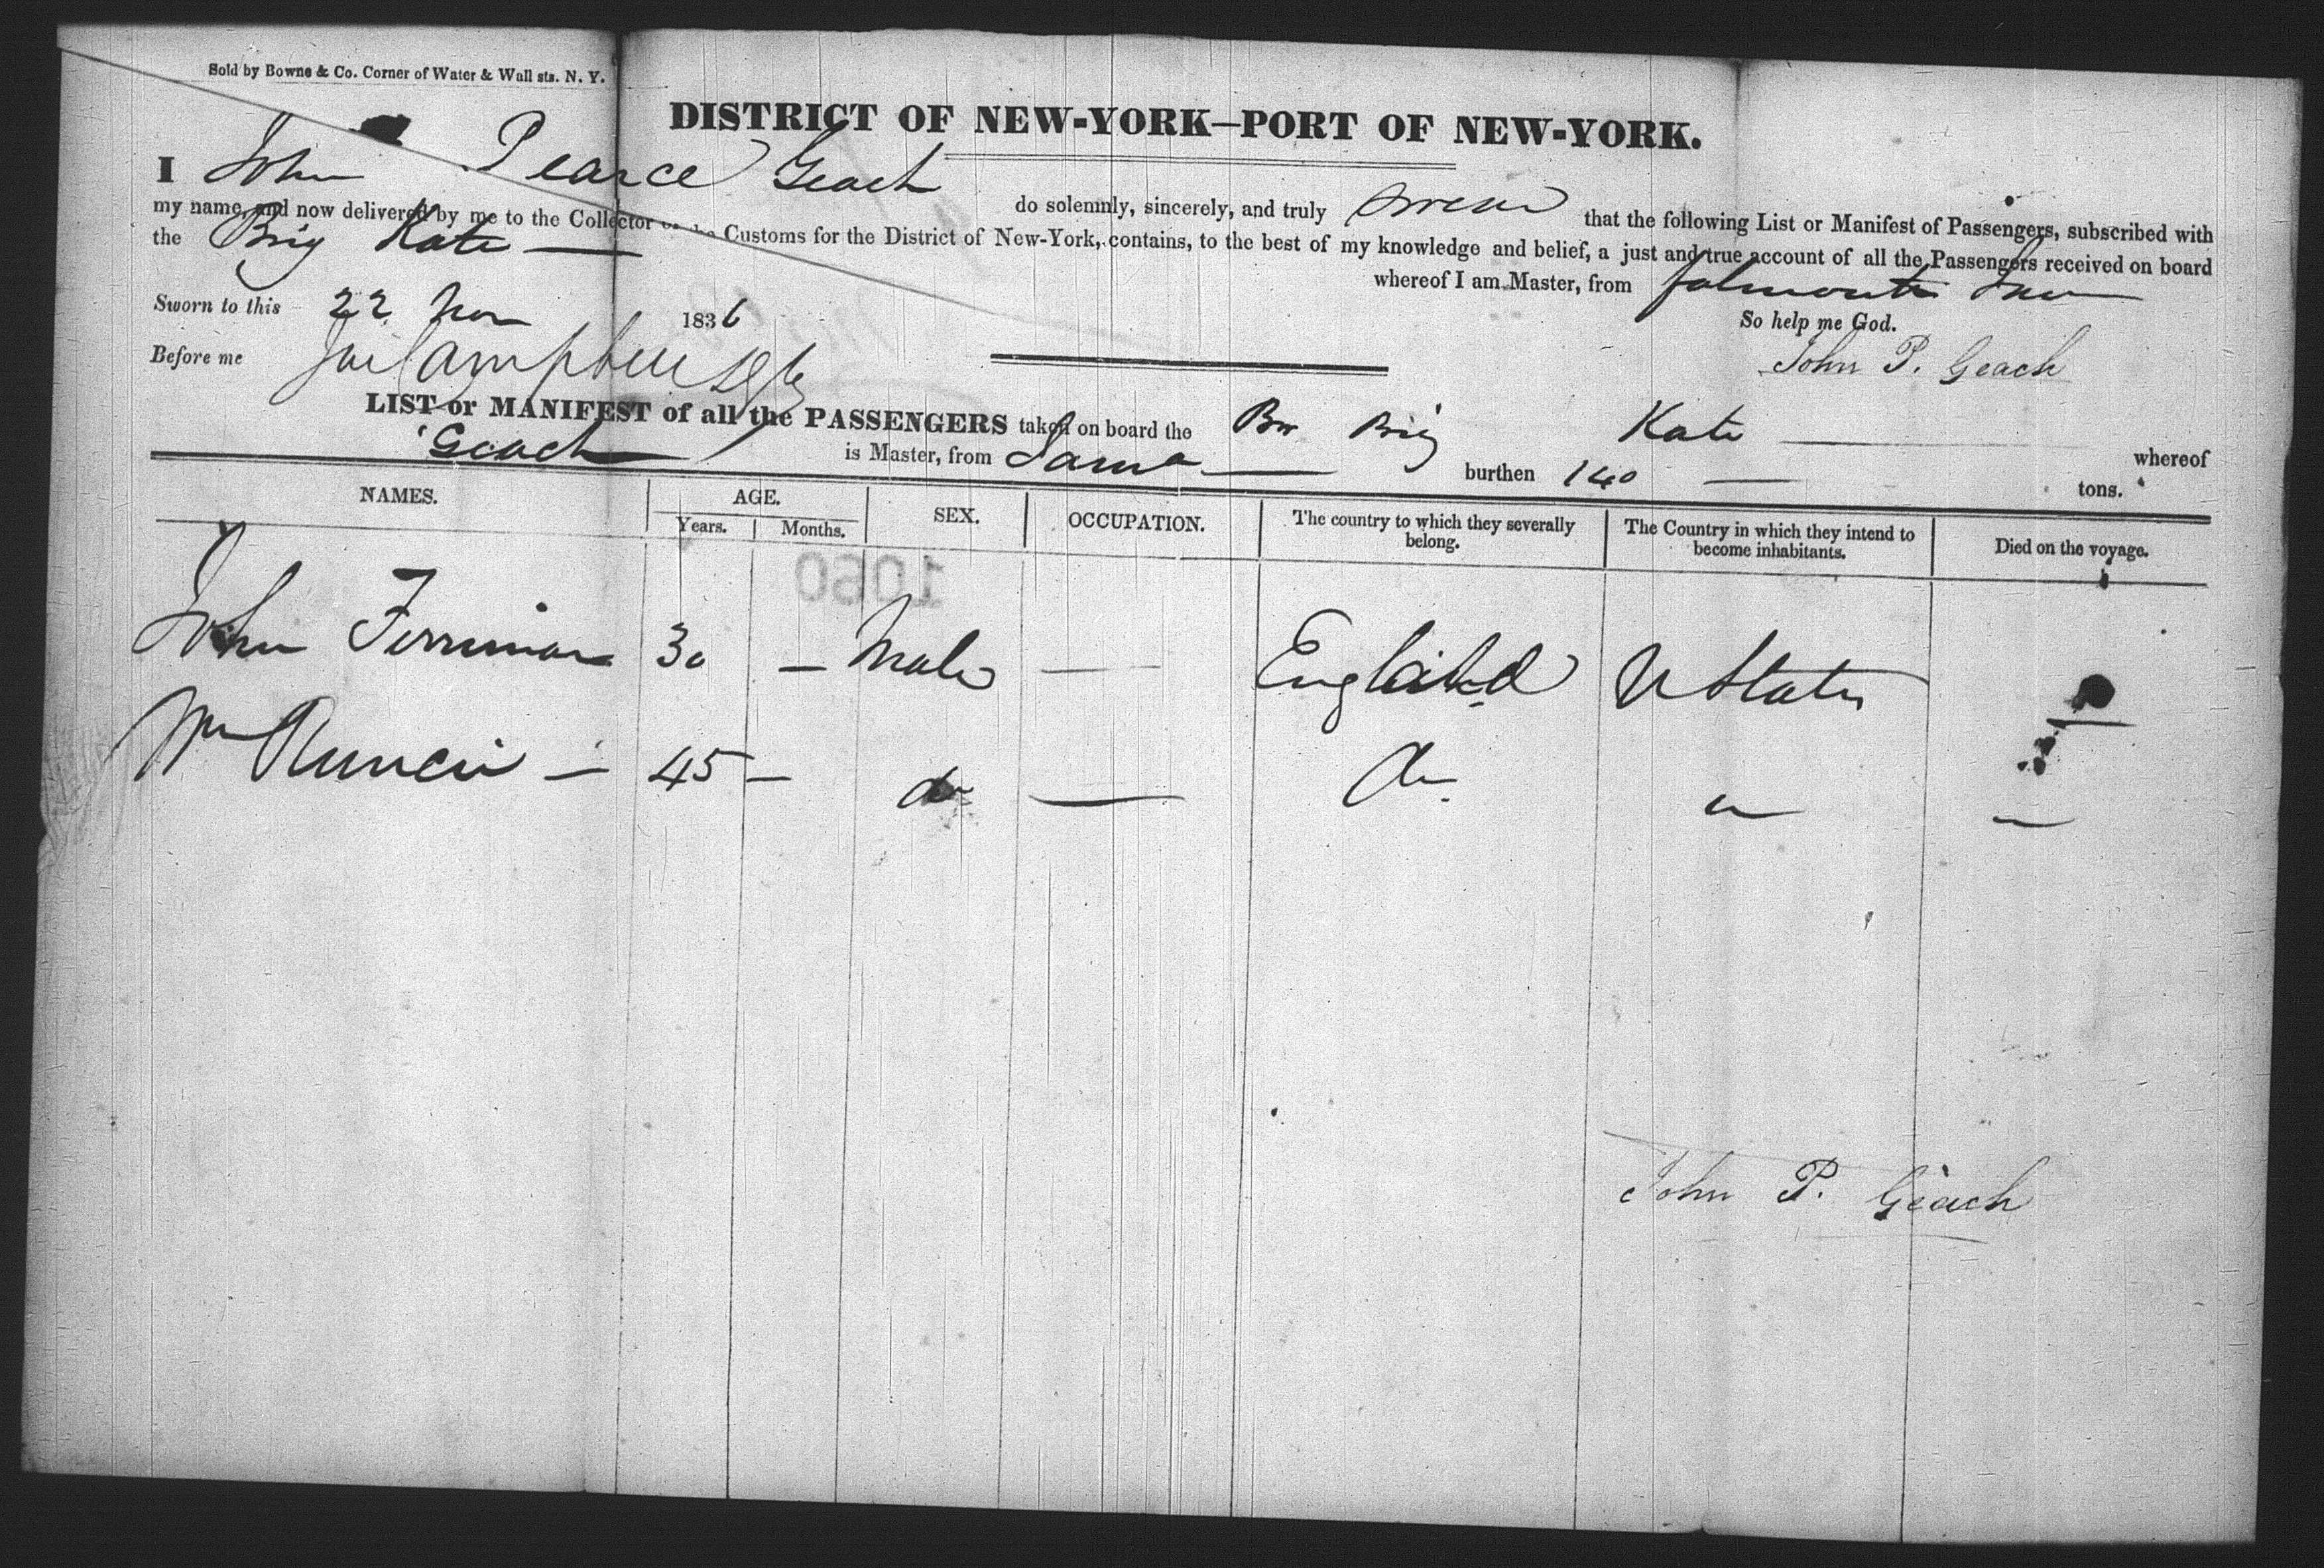 Sold by Bowne & Co. Corner of Water & Wall sts. N. Y.
DISTRICT OF NEW-YORK—PORT OF NEW-YORK.
I John Pearce Geach do solemnly, sincerely, and truly swear that the following List or Manifest of Passengers, subscribed with
my name, and now delivered by me to the Collector of the Customs for the District of New-York, contains, to the best of my knowledge and belief, a just and true account of all the Passengers received on board
the Brig Kate whereof I am Master, from Falmouth
Sworn to this 22 Nov 1836 So help me God.
Before me Campbell John P. Geach
LIST or MANIFEST of all the PASSENGERS taken on board the Br Brig Kate whereof
Geach is Master, from burthen 140 tons.
NAMES. AGE. SEX. OCCUPATION. The country to which they severally belong. The Country in which they intend to become inhabitants. Died on the voyage.
Years. Months.
1060
John 30 — Male — England U States —
Wm — 45 — do — do " —
John P. Geach